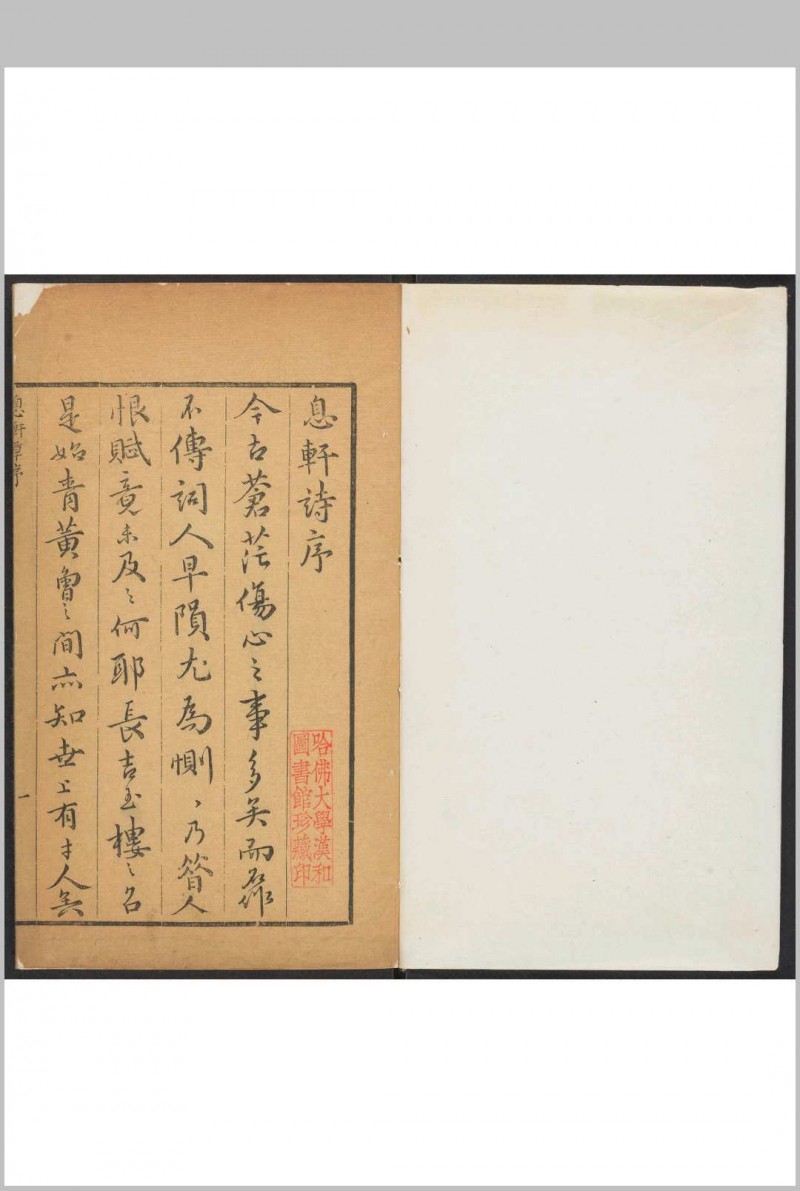 息軒詩序
今古蒼茫傷心之事多矣而
不傳詞人早隕尤為惻〻乃人
恨賦竟未及之何耶長吉玉樓之名
是始青黃曾之間亦知世上有才人矣
息軒草序
一
哈佛大學漢和
圖書館珍藏印